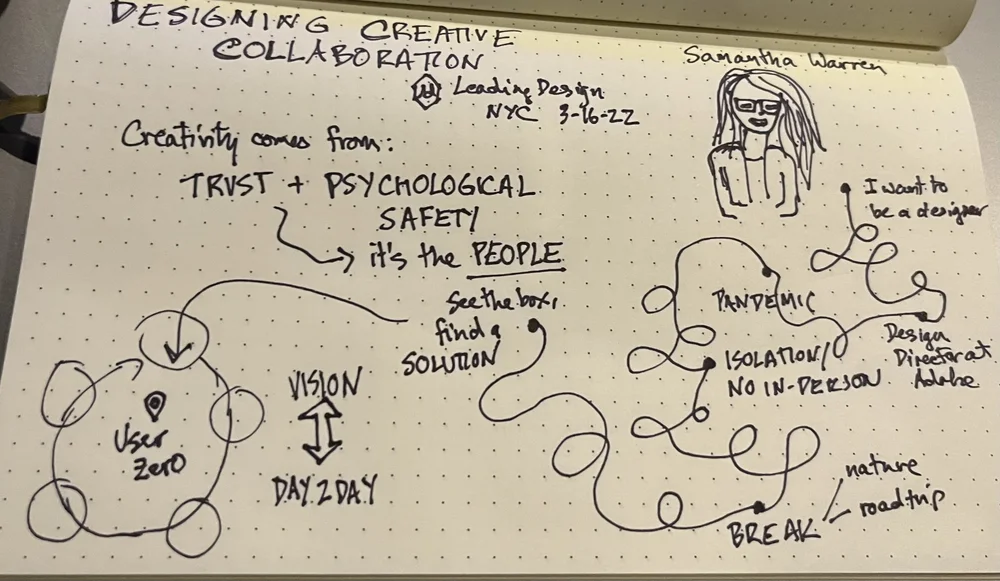 DESIGNING CREATIVE
COLLABORATION
Leading Design
NYC 3-16-22
Samantha Warren
Creativity comes from:
TRUST + PSYCHOLOGICAL
SAFETY
it's the PEOPLE
I want to
be a designer
Design
Director at
Adobe
PANDEMIC
ISOLATION/
NO IN-PERSON
BREAK
nature
roadtrip
See the box,
find a
SOLUTION
User
Zero
VISION
DAY 2 DAY